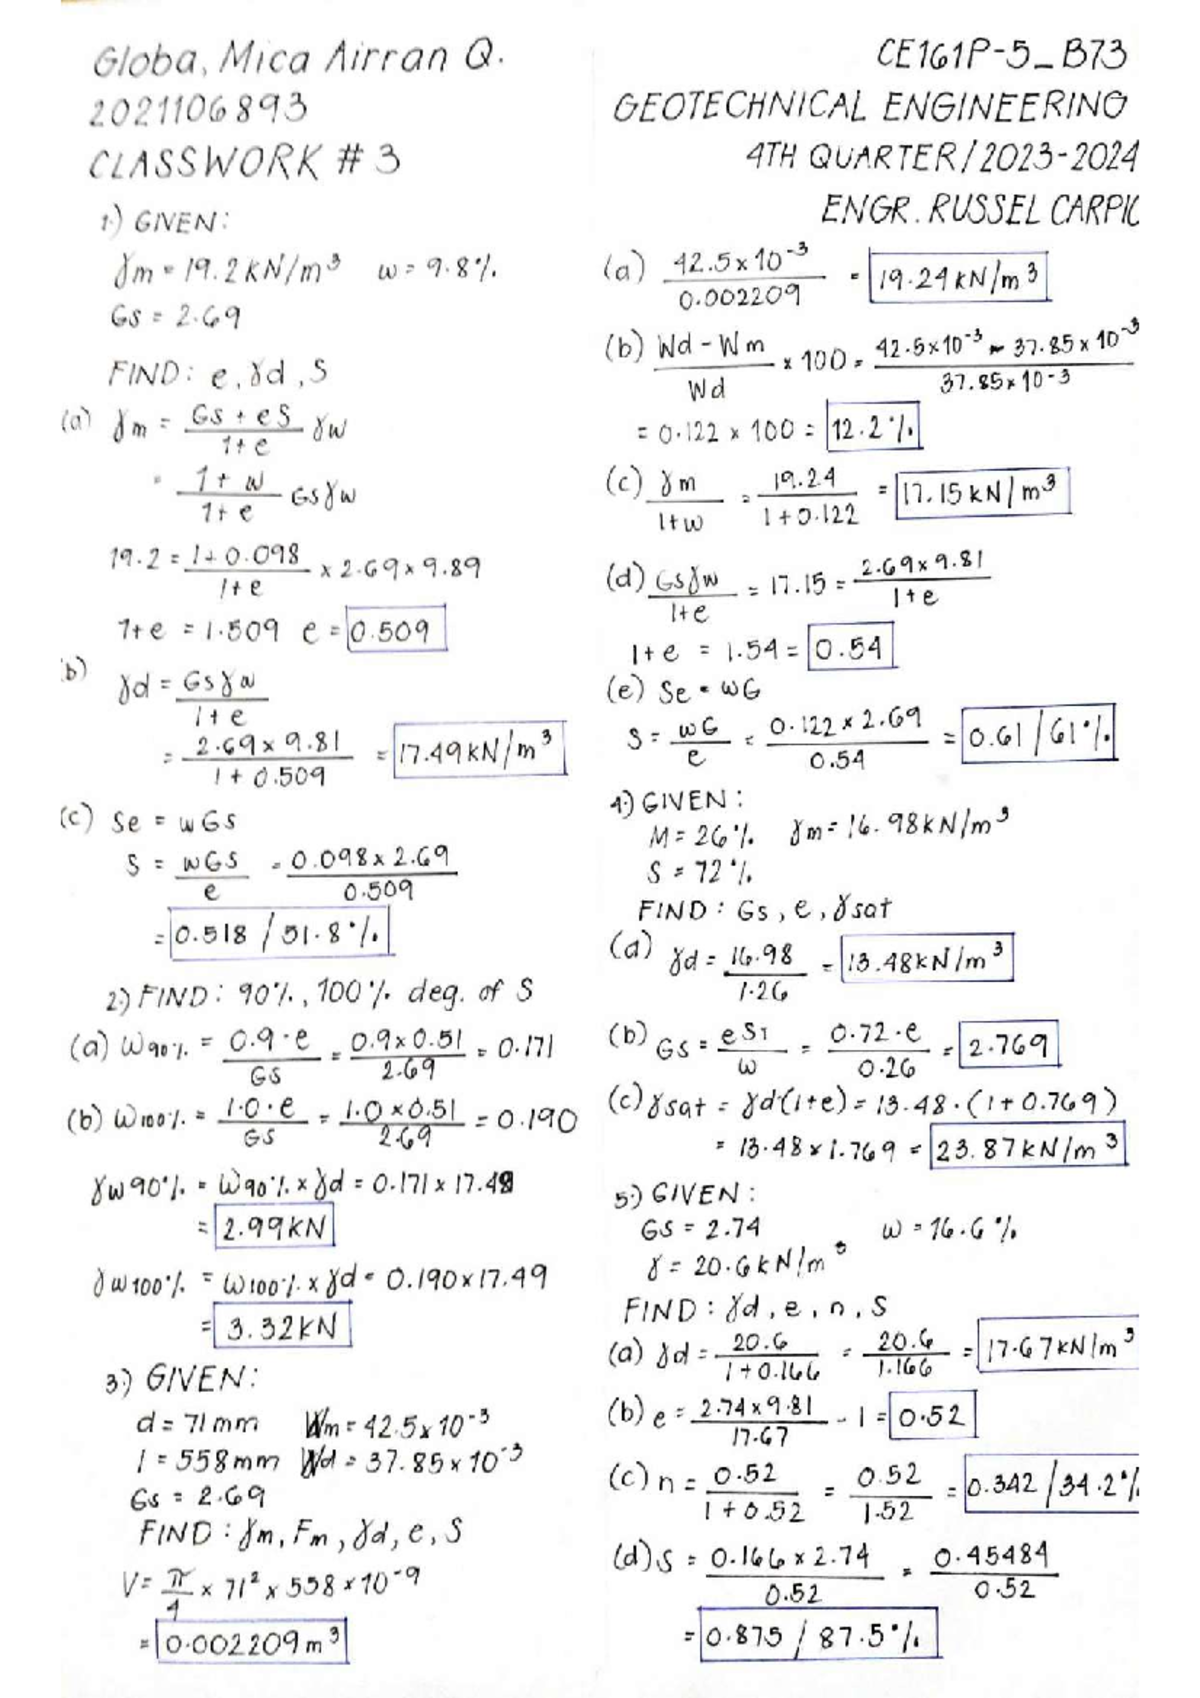 Globa, Mica Airran Q.
2021106893
CLASSWORK # 3
CE161P-5_B73
GEOTECHNICAL ENGINEERING
4TH QUARTER/2023-2024
ENGR. RUSSEL CARPIC
1.) GIVEN:
γm = 19.2 KN/m³ w = 9.8%
Gs = 2.69
FIND: e, γd, S
(a) γm = (Gs + eS)/(1+e) γw
= (1+w)/(1+e) Gsγw
19.2 = (1+0.098)/(1+e) x 2.69 x 9.89
1+e = 1.509 e = 0.509
b) γd = Gsγw/(1+e)
= (2.69 x 9.81)/(1+0.509) = 17.49 kN/m³
(c) Se = wGs
S = wGs/e = (0.098 x 2.69)/0.509
= 0.518 / 51.8%
2.) FIND: 90%, 100% deg. of S
(a) W90% = (0.9·e)/Gs = (0.9x0.51)/2.69 = 0.171
(b) W100% = (1.0·e)/Gs = (1.0x0.51)/2.69 = 0.190
γw90% = W90% x γd = 0.171 x 17.49
= 2.99KN
γw100% = W100% x γd = 0.190x17.49
= 3.32KN
3.) GIVEN:
d = 71 mm Wm = 42.5x10⁻³
l = 558mm Wd = 37.85x10⁻³
Gs = 2.69
FIND: γm, Fm, γd, e, S
V = π/4 x 71² x 558 x 10⁻⁹
= 0.002209 m³
(a) (42.5x10⁻³)/0.002209 = 19.24 kN/m³
(b) (Wd - Wm)/Wd x 100 = (42.5x10⁻³ - 37.85x10⁻³)/(37.85x10⁻³)
= 0.122 x 100 = 12.2%
(c) γm/(1+w) = 19.24/(1+0.122) = 17.15 kN/m³
(d) Gsγw/(1+e) = 17.15 = (2.69x9.81)/(1+e)
1+e = 1.54 = 0.54
(e) Se = wG
S = wG/e = (0.122 x 2.69)/0.54 = 0.61 / 61%
4.) GIVEN:
M = 26% γm = 16.98 kN/m³
S = 72%
FIND: Gs, e, γsat
(a) γd = 16.98/1.26 = 13.48kN/m³
(b) Gs = eS1/w = (0.72·e)/0.26 = 2.769
(c) γsat = γd·(1+e) = 13.48·(1+0.769)
= 13.48 x 1.769 = 23.87 KN/m³
5.) GIVEN:
Gs = 2.74 , w = 16.6%
γ = 20.6 kN/m³
FIND: γd, e, n, S
(a) γd = 20.6/(1+0.166) = 20.6/1.166 = 17.67 kN/m³
(b) e = (2.74x9.81)/17.67 - 1 = 0.52
(c) n = 0.52/(1+0.52) = 0.52/1.52 = 0.342 / 34.2%
(d) S = (0.166 x 2.74)/0.52 = 0.45484/0.52
= 0.875 / 87.5%